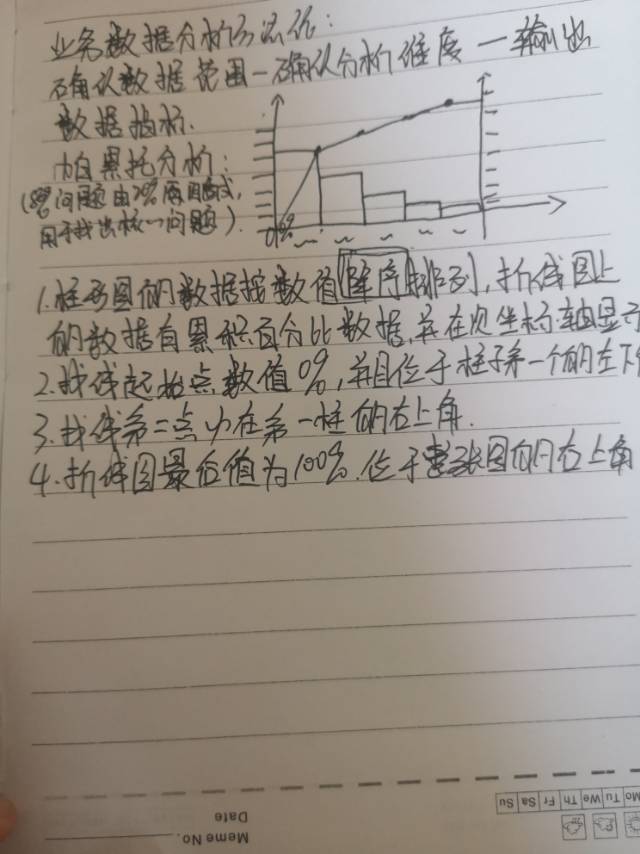 业务数据分析方法论：
确认数据范围一确认分析维度一输出
数据指标.
帕累托分析：
(80%问题由20%原因造成,
用于找出核心问题).
0%
1.柱形图的数据按数值(降序)排列,折线图上
的数据有累积百分比数据,并在次坐标轴显示
2.折线起始点数值0%,并且位于柱子第一个的左下
3.折线第二点必在第一柱的右上角.
4.折线图最后值为100%.位于整张图的右上角
Mo Tu We Th Fr Sa Su
Date
Memo No.